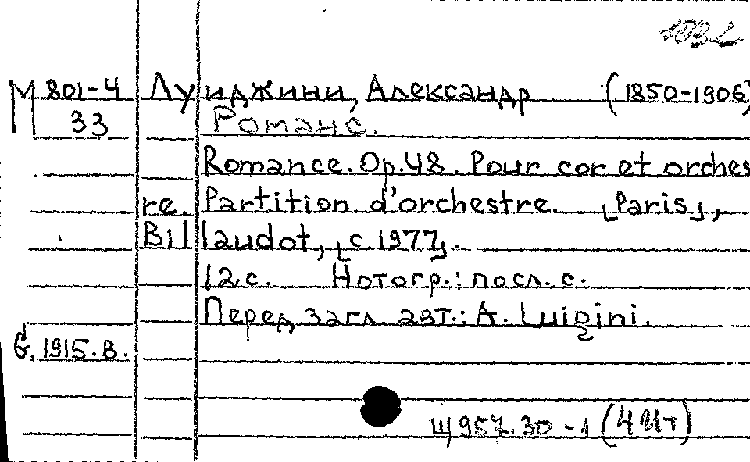 1032
М 801-4 Луиджини, Александр (1850-1906)
33 Романс.
Romance. Op. 48. Pour cor et orches
re. Partition d'orchestre. [Paris],
Billaudot, [c 1977].
12 с. Нотогр.: посл. с.
Перед загл. авт.: A. Luigini.
б. 1915.В.
Щ 957.30-1 (4Ит)